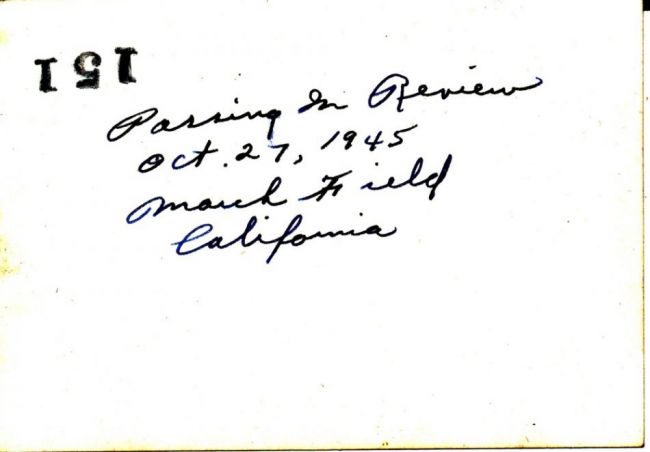 151
Passing In Review
Oct. 27, 1945
March Field
California